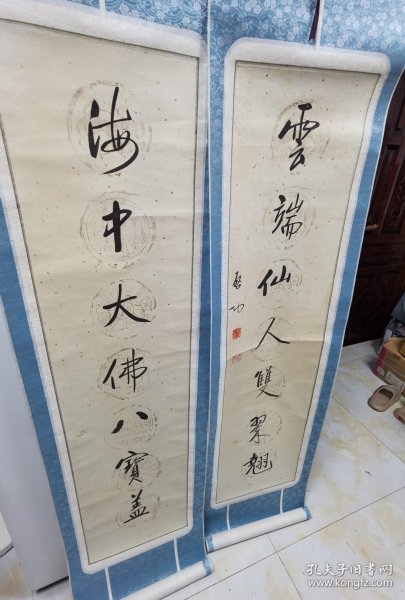 雲端仙人雙翠翹
啟功
海中大佛八寶蓋
孔夫子旧书网
www.kongfz.com